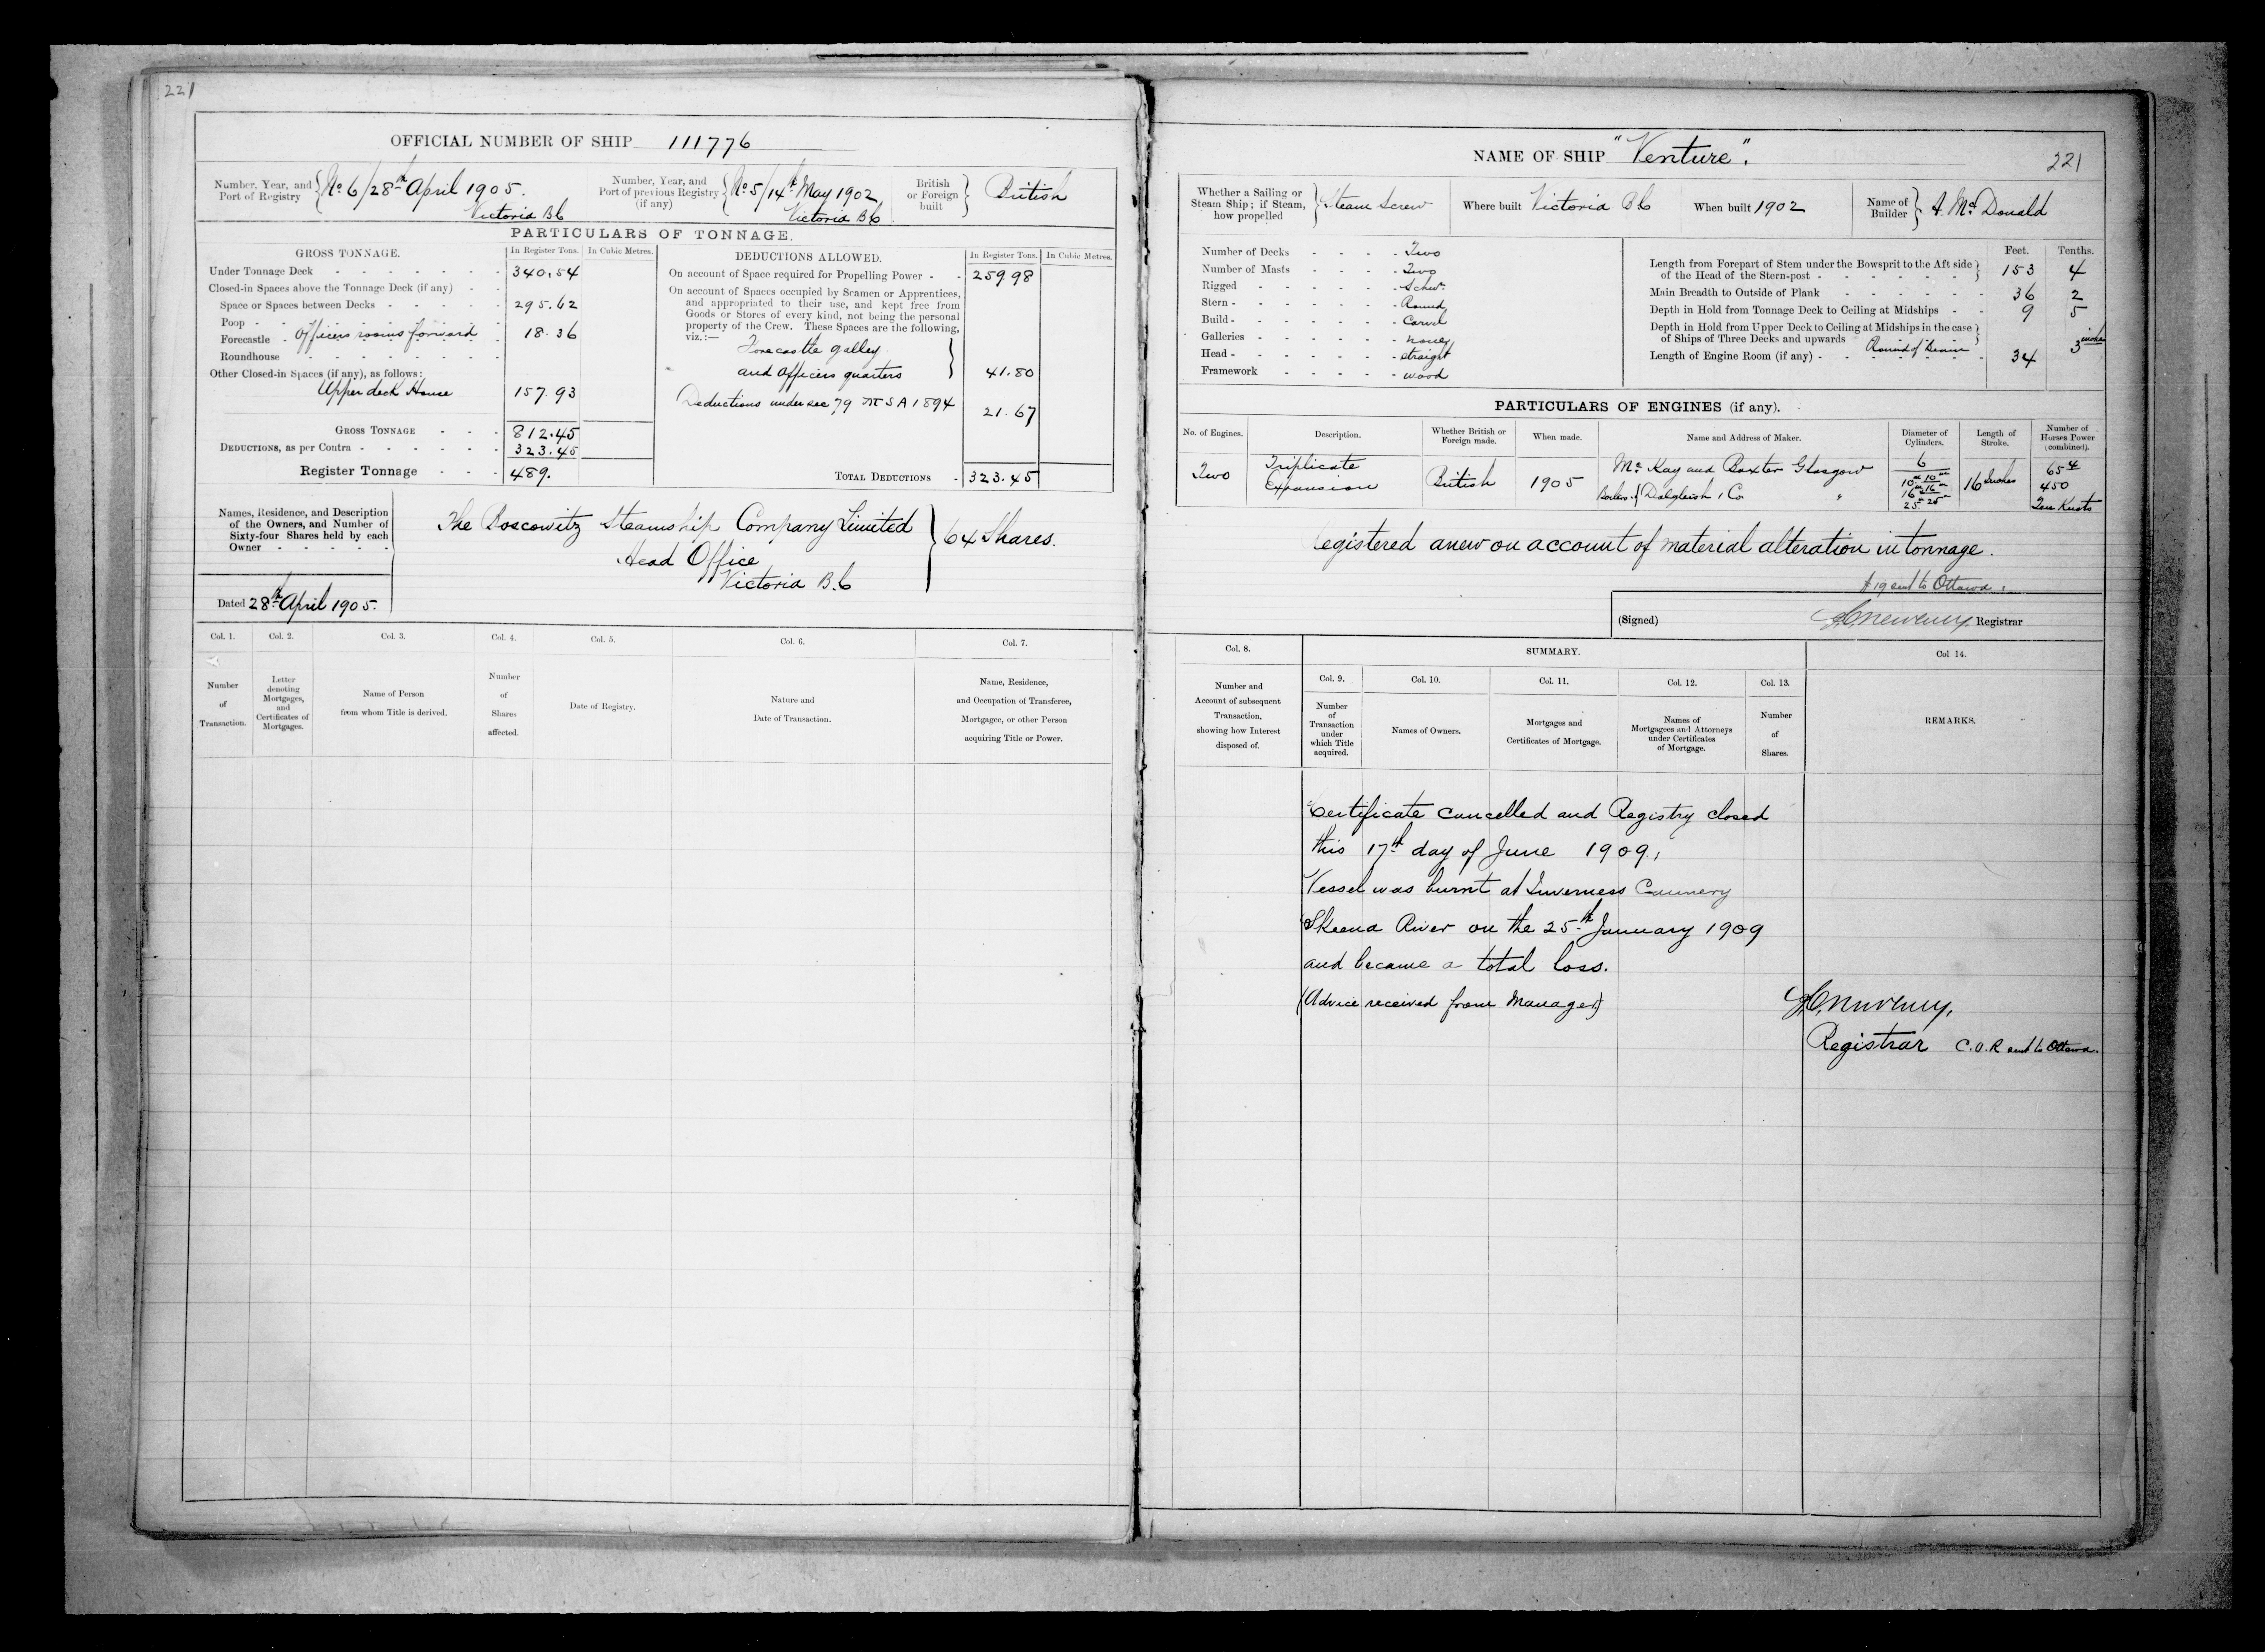 221
OFFICIAL NUMBER OF SHIP 111776
Number, Year, and Port of Registry { No 6/28th April 1905. Victoria B C
Number, Year, and Port of previous Registry (if any) { No 5/14th May 1902 Victoria B C
British or Foreign built } British
PARTICULARS OF TONNAGE.
GROSS TONNAGE. In Register Tons. In Cubic Metres.
Under Tonnage Deck 340.54
Closed-in Spaces above the Tonnage Deck (if any)
Space or Spaces between Decks 295.62
Poop
Forecastle Officers rooms forward 18.36
Roundhouse
Other Closed-in Spaces (if any), as follows:
Upper deck House 157.93
GROSS TONNAGE 812.45
DEDUCTIONS, as per Contra 323.45
Register Tonnage 489.
DEDUCTIONS ALLOWED. In Register Tons. In Cubic Metres.
On account of Space required for Propelling Power 259 98
On account of Spaces occupied by Seamen or Apprentices,
and appropriated to their use, and kept free from
Goods or Stores of every kind, not being the personal
property of the Crew. These Spaces are the following,
viz.:—
Forecastle galley
and Officers quarters } 41.80
Deductions under sec 79 M S A 1894 21.67
TOTAL DEDUCTIONS 323.45
Names, Residence, and Description
of the Owners, and Number of
Sixty-four Shares held by each
Owner
The Boscowitz Steamship Company Limited
Head Office
Victoria B.C
} 64 Shares.
Dated 28th April 1905.
Col. 1. Col. 2. Col. 3. Col. 4. Col. 5. Col. 6. Col. 7.
Number of Transaction.
Letter denoting Mortgages, and Certificates of Mortgages.
Name of Person from whom Title is derived.
Number of Shares affected.
Date of Registry.
Nature and Date of Transaction.
Name, Residence, and Occupation of Transferee, Mortgagee, or other Person acquiring Title or Power.
NAME OF SHIP "Venture".
221
Whether a Sailing or Steam Ship; if Steam, how propelled } Steam Screw
Where built Victoria B C
When built 1902
Name of Builder } A. McDonald
Number of Decks Two
Number of Masts Two
Rigged Schr
Stern Round
Build Carvel
Galleries none
Head straight
Framework wood
Feet. Tenths.
Length from Forepart of Stem under the Bowsprit to the Aft side of the Head of the Stern-post 153 4
Main Breadth to Outside of Plank 36 2
Depth in Hold from Tonnage Deck to Ceiling at Midships 9 5
Depth in Hold from Upper Deck to Ceiling at Midships in the case of Ships of Three Decks and upwards
Round of Beam 3 inches
Length of Engine Room (if any) 34
PARTICULARS OF ENGINES (if any).
No. of Engines. Description. Whether British or Foreign made. When made. Name and Address of Maker. Diameter of Cylinders. Length of Stroke. Number of Horses Power (combined).
Two Triplicate Expansion British 1905 McKay and Baxter Glasgow 6 16 Inches 65 4
Boilers / Dalgleish & Co " 10 10 450
16 16
25 25 Ten Knots
Registered anew on account of material alteration in tonnage.
sent to Ottawa
(Signed) Registrar
Col. 8. SUMMARY. Col 14.
Number and Account of subsequent Transaction, showing how Interest disposed of.
Col. 9. Col. 10. Col. 11. Col. 12. Col. 13.
Number of Transaction under which Title acquired.
Names of Owners.
Mortgages and Certificates of Mortgage.
Names of Mortgagees and Attorneys under Certificates of Mortgage.
Number of Shares.
REMARKS.
Certificate cancelled and Registry closed
this 17th day of June 1909.
Vessel was burnt at Inverness Cannery
Skeena River on the 25th January 1909
and became a total loss.
(Advice received from Manager)
Registrar C.O.R sent to Ottawa.